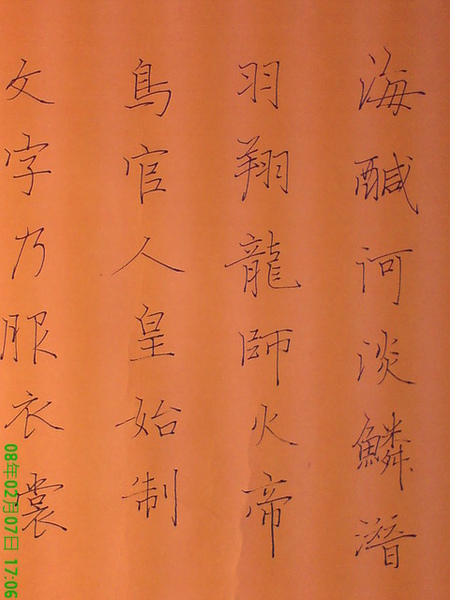 海醎河淡鱗潛
羽翔龍師火帝
鳥官人皇始制
文字乃服衣裳
08年02月07日 17:06